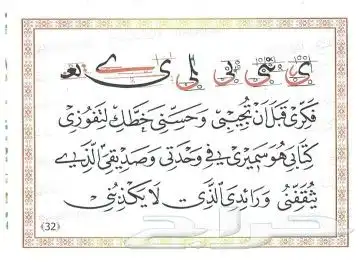 ي ثى لى لى ى ے لغى
فكري قبل أن تجيبي وحسني خطك لتفوزي
كتابي هو سميري في وحدتي وصديقي الذي
يثقفني ورائدي الذي لا يكذبني
﴿32﴾
حراج